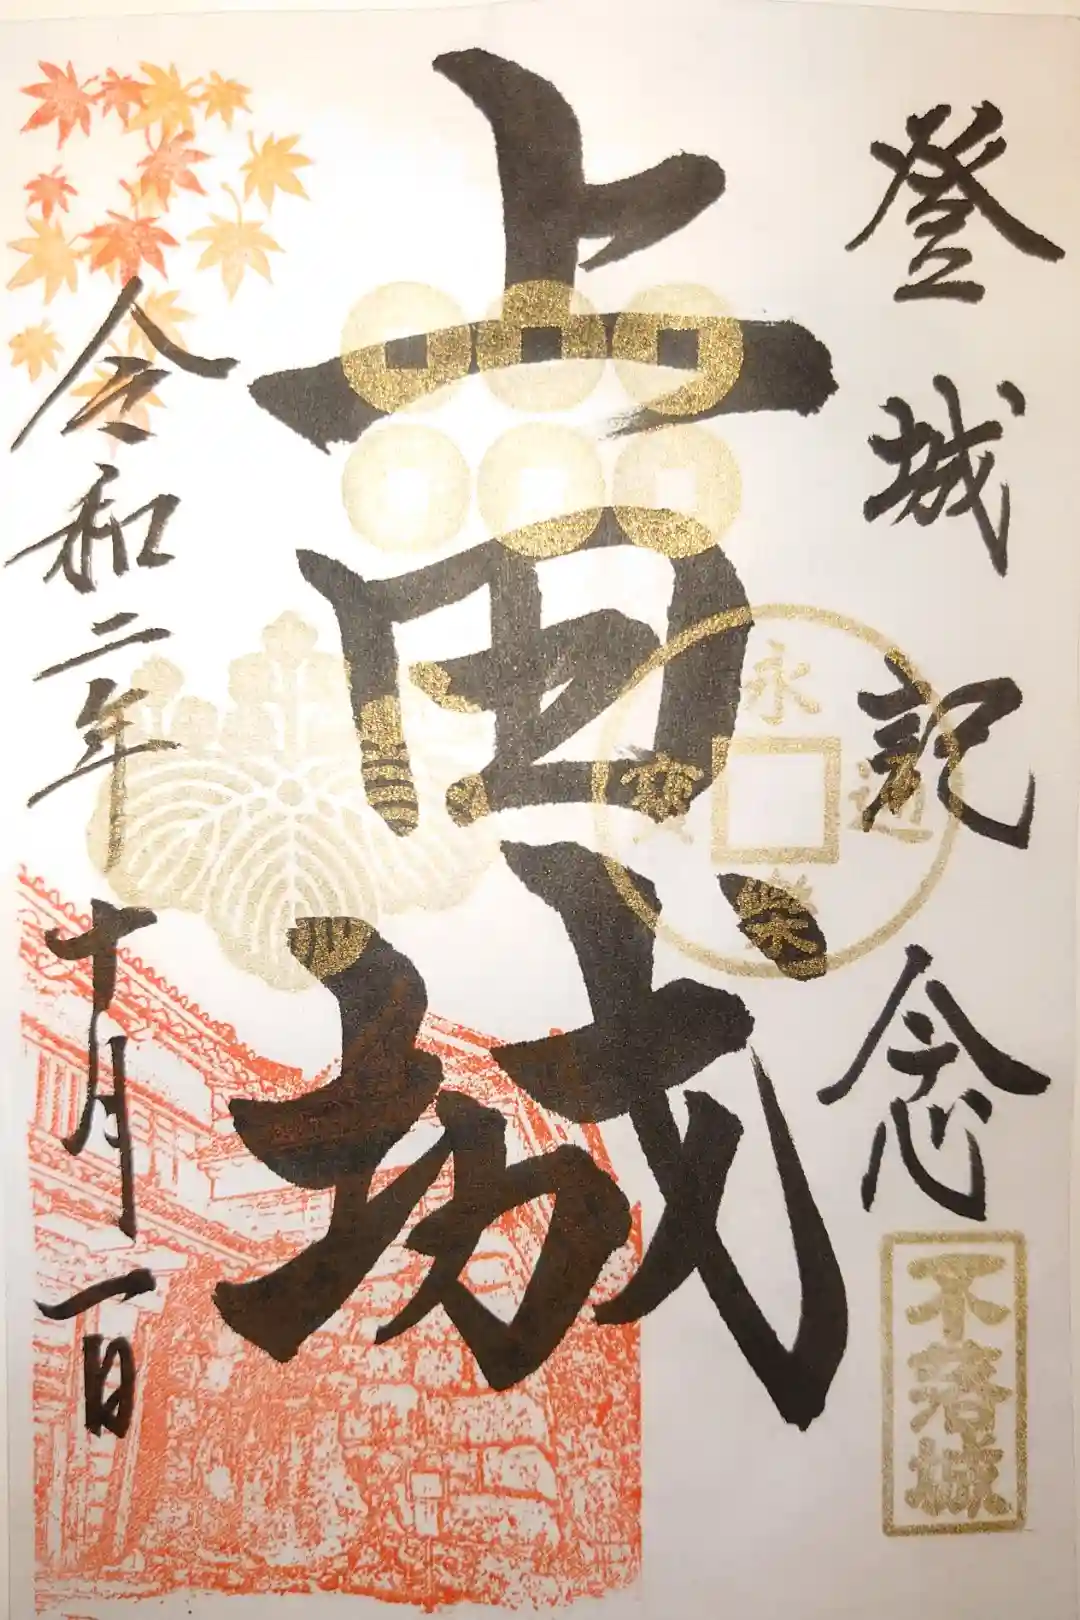 登城記念
不落城
上田城
永
通
樂
寳
令和二年
十月一日